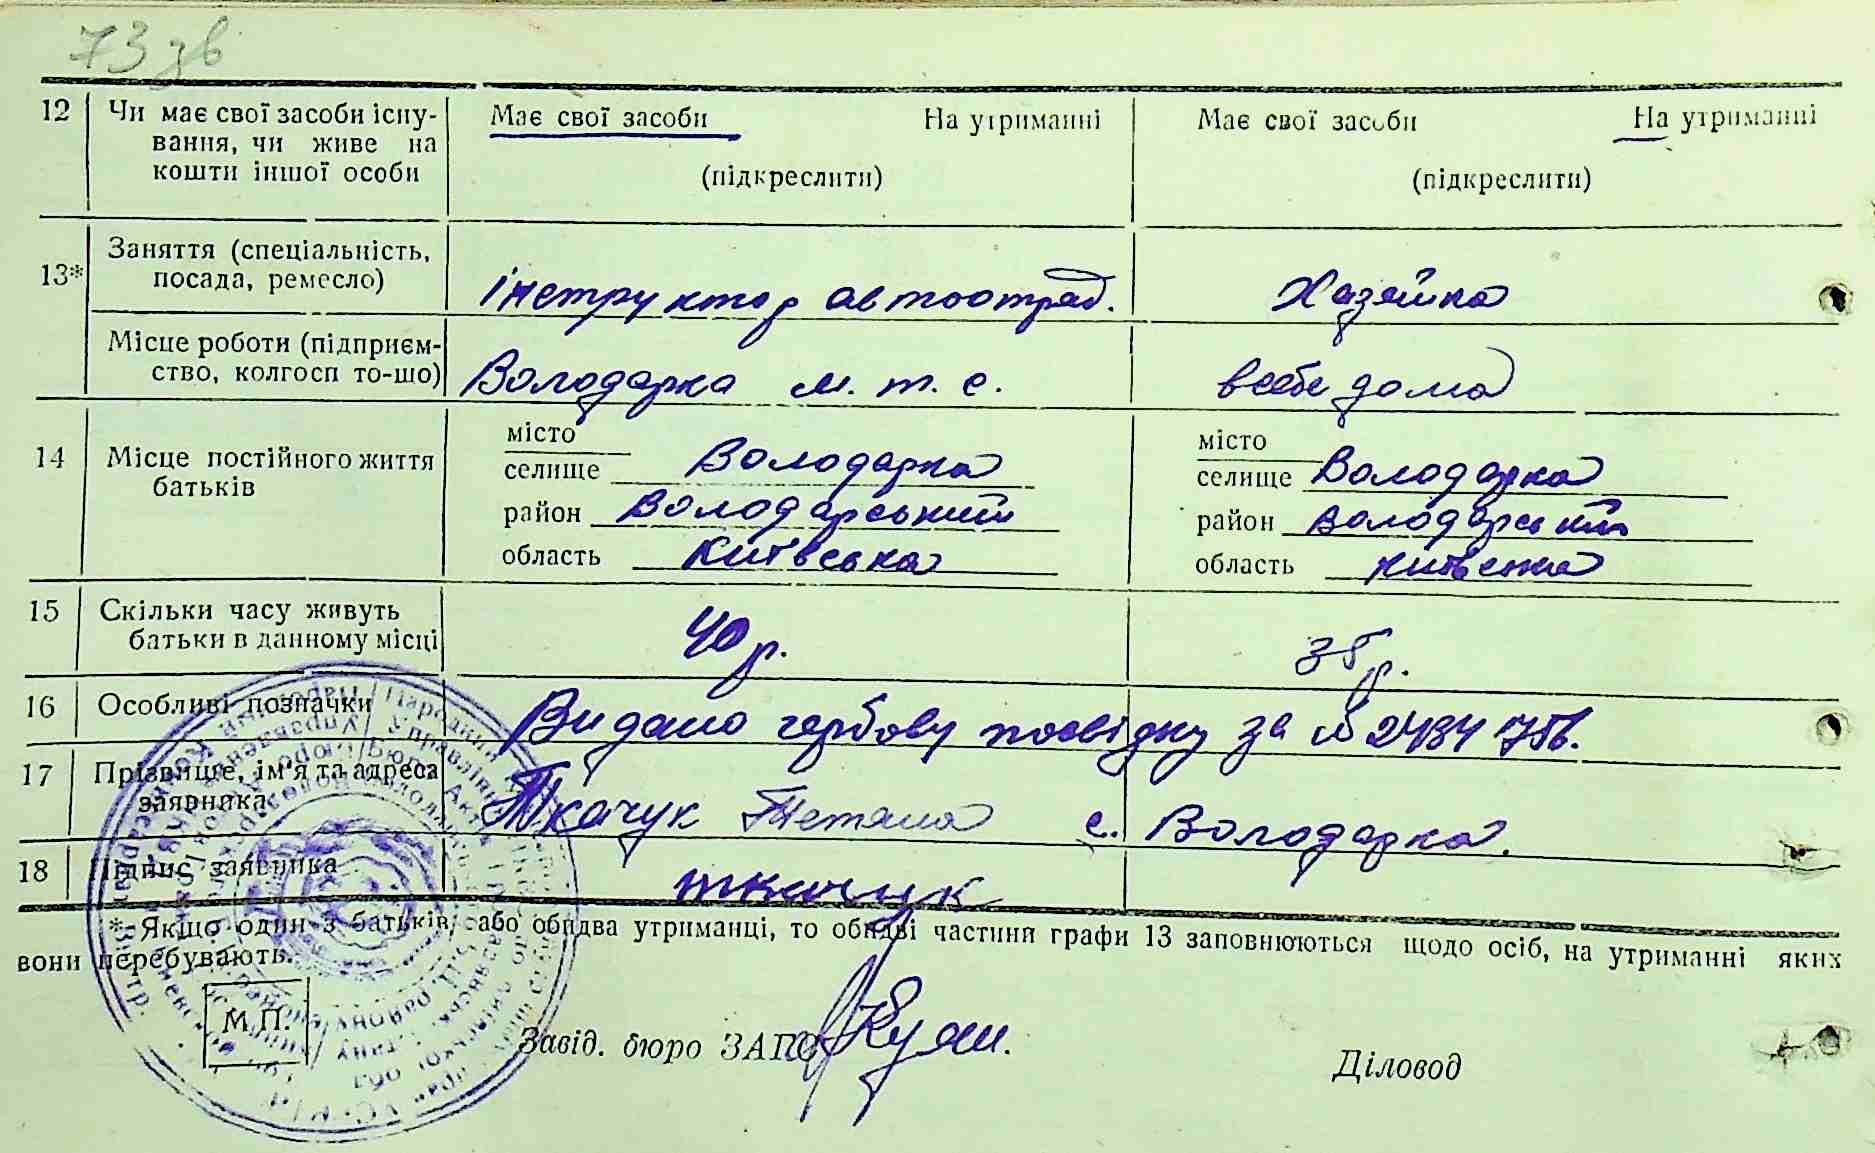 73 зв
12 Чи має свої засоби існу- Має свої засоби На утриманні Має свої засоби На утриманні
вання, чи живе на
кошти іншої особи (підкреслити) (підкреслити)
13* Заняття (спеціальність,
посада, ремесло) інструктор автоотряд. Хазяйка
Місце роботи (підприєм-
ство, колгосп то-що) Володарка м. т. с. всебе дома
14 Місце постійного життя
батьків
місто місто
селище Володарка селище Володарка
район Володарський район Володарський
область Київська область Київська
15 Скільки часу живуть
батьки в данному місці 40 р. 35 р.
16 Особливі позначки Видано гербову посвідку за №
17 Прізвище, ім'я та адреса
заявника Ткачук Тетяна с. Володарка.
18 Підпис заявника ткачук
* Якщо один з батьків, або обидва утриманці, то обидві частини графи 13 заповнюються щодо осіб, на утриманні яких
вони перебувають.
М.П.
Завід. бюро ЗАГС
Діловод